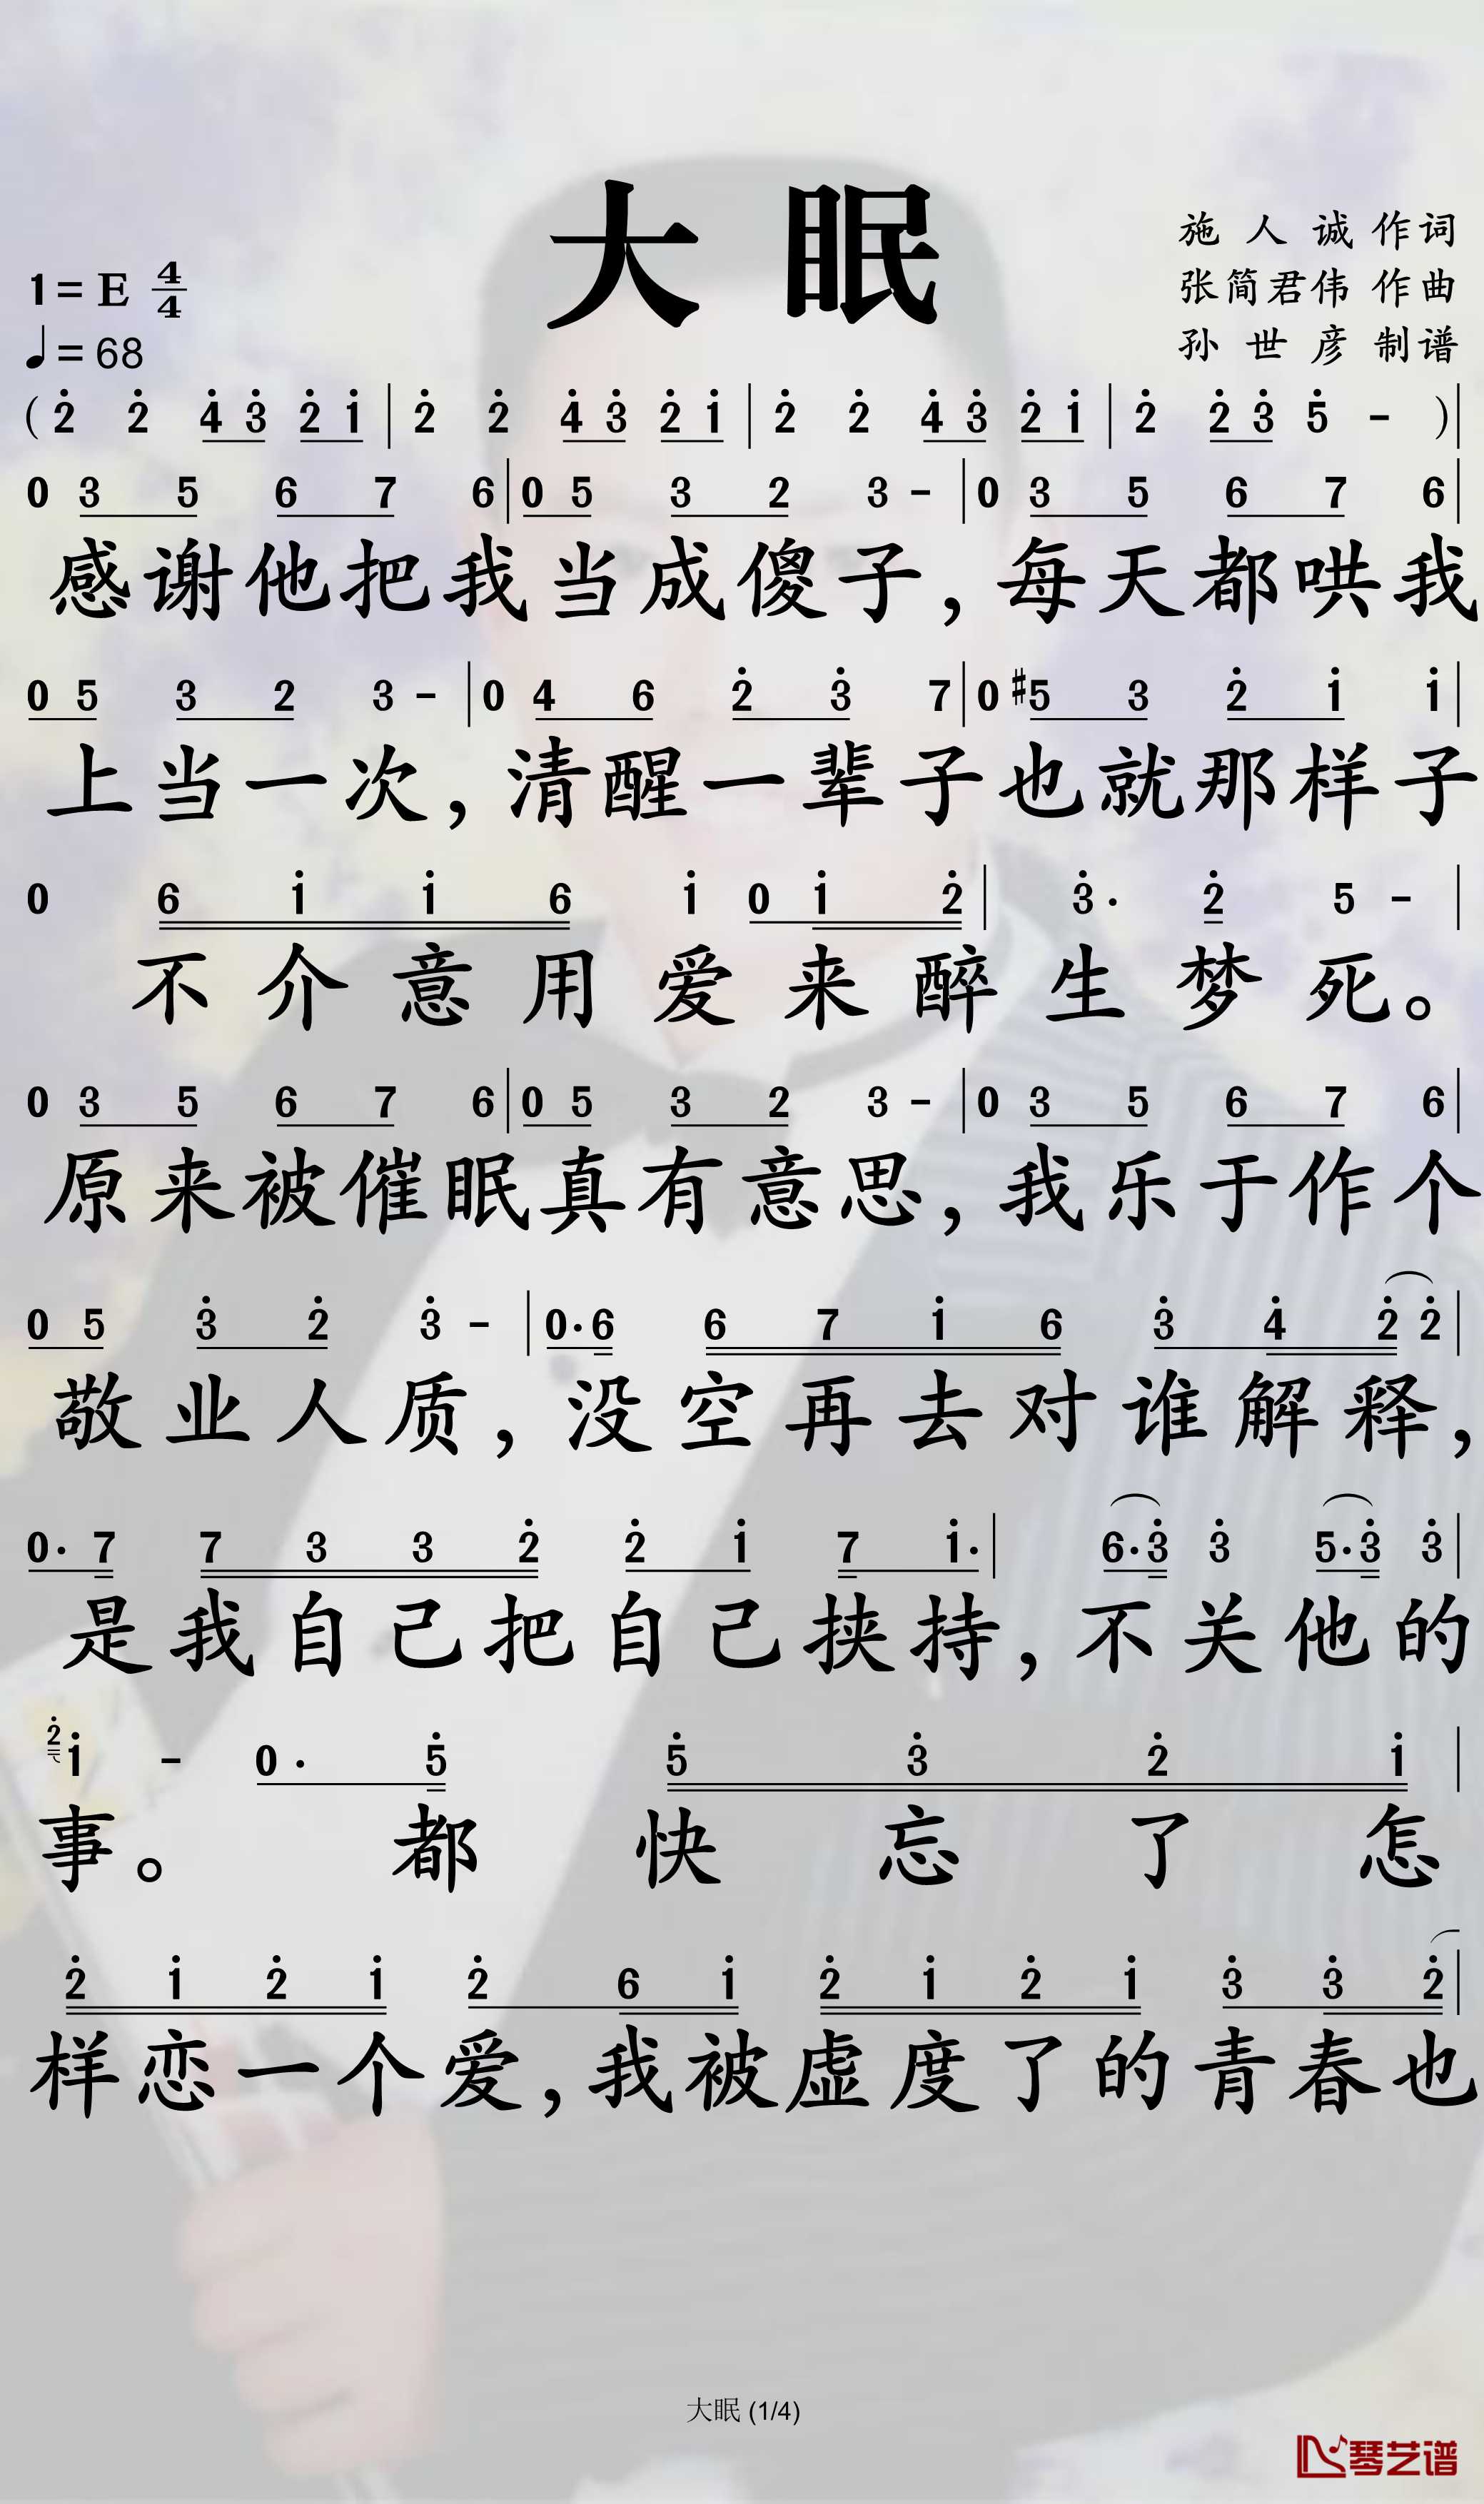 大眠
施人诚作词
张简君伟作曲
孙世彦制谱
1=E 4/4
♩=68
(2̇ 2̇ 4̇ 3̇ 2̇ 1̇ | 2̇ 2̇ 4̇ 3̇ 2̇ 1̇ | 2̇ 2̇ 4̇ 3̇ 2̇ 1̇ | 2̇ 2̇ 3̇ 5̇ - )|
0 3 5 6 7 6 | 0 5 3 2 3 - | 0 3 5 6 7 6 |
感谢他把我当成傻子，每天都哄我
0 5 3 2 3 - | 0 4 6 2̇ 3̇ 7 | 0 #5 3 2̇ 1̇ 1̇ |
上当一次，清醒一辈子也就那样子
0 6 1̇ 1̇ 6 1̇ 0 1̇ 2̇ | 3̇· 2̇ 5 - |
不介意用爱来醉生梦死。
0 3 5 6 7 6 | 0 5 3 2 3 - | 0 3 5 6 7 6 |
原来被催眠真有意思，我乐于作个
0 5 3̇ 2̇ 3̇ - | 0·6 6 7 1̇ 6 3̇ 4̇ 2̇ 2̇ |
敬业人质，没空再去对谁解释，
0· 7 7 3 3 2̇ 2̇ 1̇ 7 1̇· | 6·3̇ 3̇ 5·3̇ 3̇ |
是我自己把自己挟持，不关他的
2̇ 1̇ - 0· 5̇ 5̇ 3̇ 2̇ 1̇ |
事。都快忘了怎
2̇ 1̇ 2̇ 1̇ 2̇ 6 1̇ 2̇ 1̇ 2̇ 1̇ 3̇ 3̇ 2̇ |
样恋一个爱，我被虚度了的青春也
大眠 (1/4)
琴艺谱